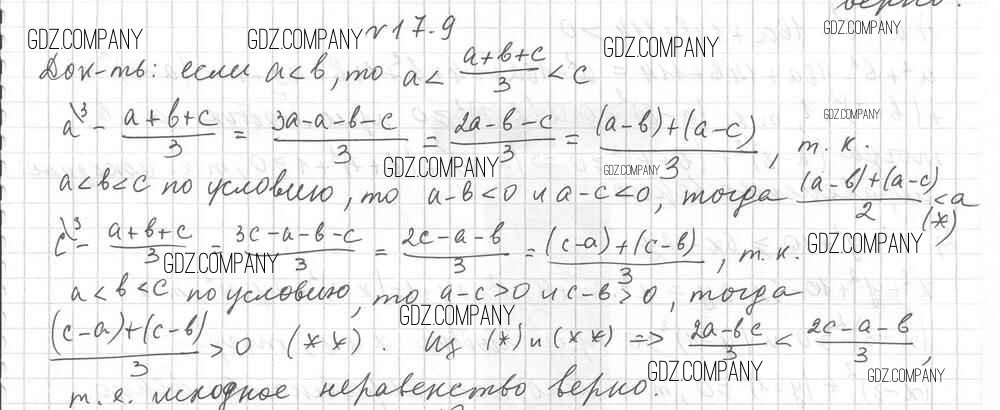 верно.
GDZ.COMPANY GDZ.COMPANY №17.9 GDZ.COMPANY GDZ.COMPANY
Док-ть: если a<b, то a < (a+b+c)/3 < c
a\3 - (a+b+c)/3 = (3a-a-b-c)/3 = (2a-b-c)/3 = ((a-b)+(a-c))/3, т.к. GDZ.COMPANY
GDZ.COMPANY GDZ.COMPANY
a<b<c по условию, то a-b<0 и a-c<0, тогда ((a-b)+(a-c))/2 <a (*)
c\3 - (a+b+c)/3 = (3c-a-b-c)/3 = (2c-a-b)/3 = ((c-a)+(c-b))/3, т.к. GDZ.COMPANY
GDZ.COMPANY
a<b<c по условию, то a-c>0 и c-b>0, тогда
GDZ.COMPANY
((c-a)+(c-b))/3 >0 (**). Из (*) и (**) => (2a-b c)/3 < (2c-a-b)/3,
GDZ.COMPANY GDZ.COMPANY
т.е. исходное неравенство верно.